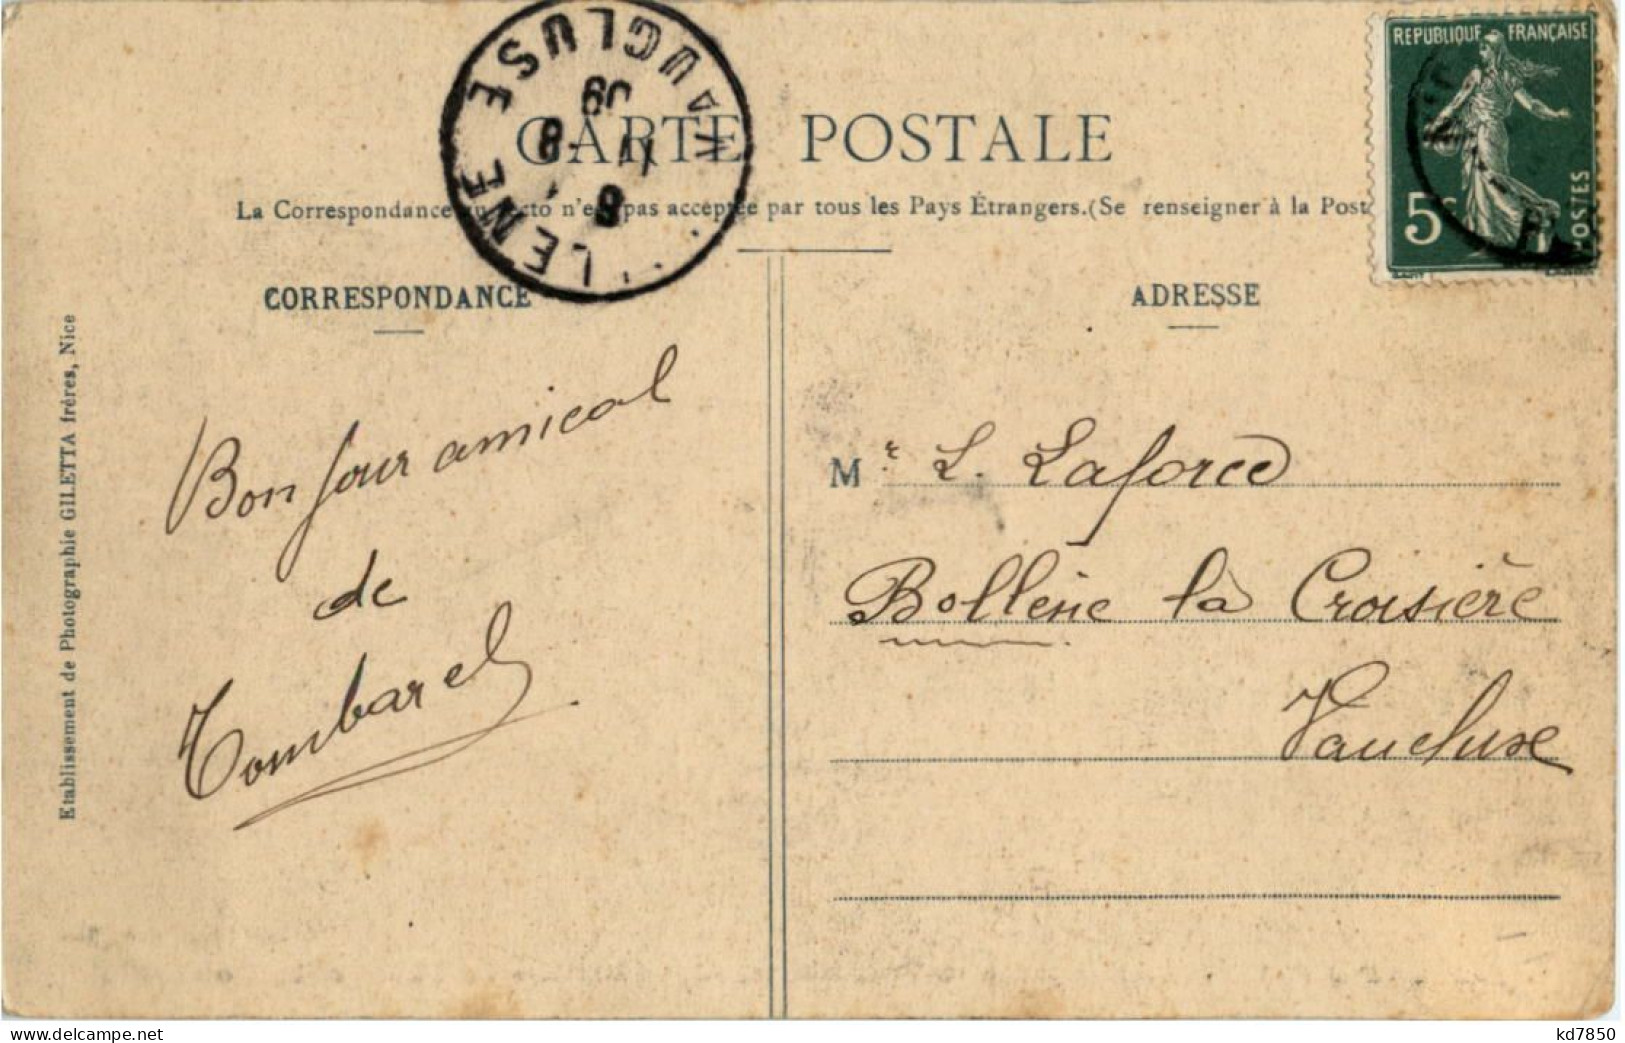 CARTE POSTALE
La Correspondance au recto n'est pas acceptée par tous les Pays Étrangers.(Se renseigner à la Post
CORRESPONDANCE
ADRESSE
REPUBLIQUE FRANÇAISE
5c
POSTES
VAUCLUSE
09
8
8
Etablissement de Photographie GILETTA frères, Nice
Bonjour amical
de
Tombarel
Mr L. Laforce
Bollène la Croisière
Vaucluse
www.delcampe.net
kd7850